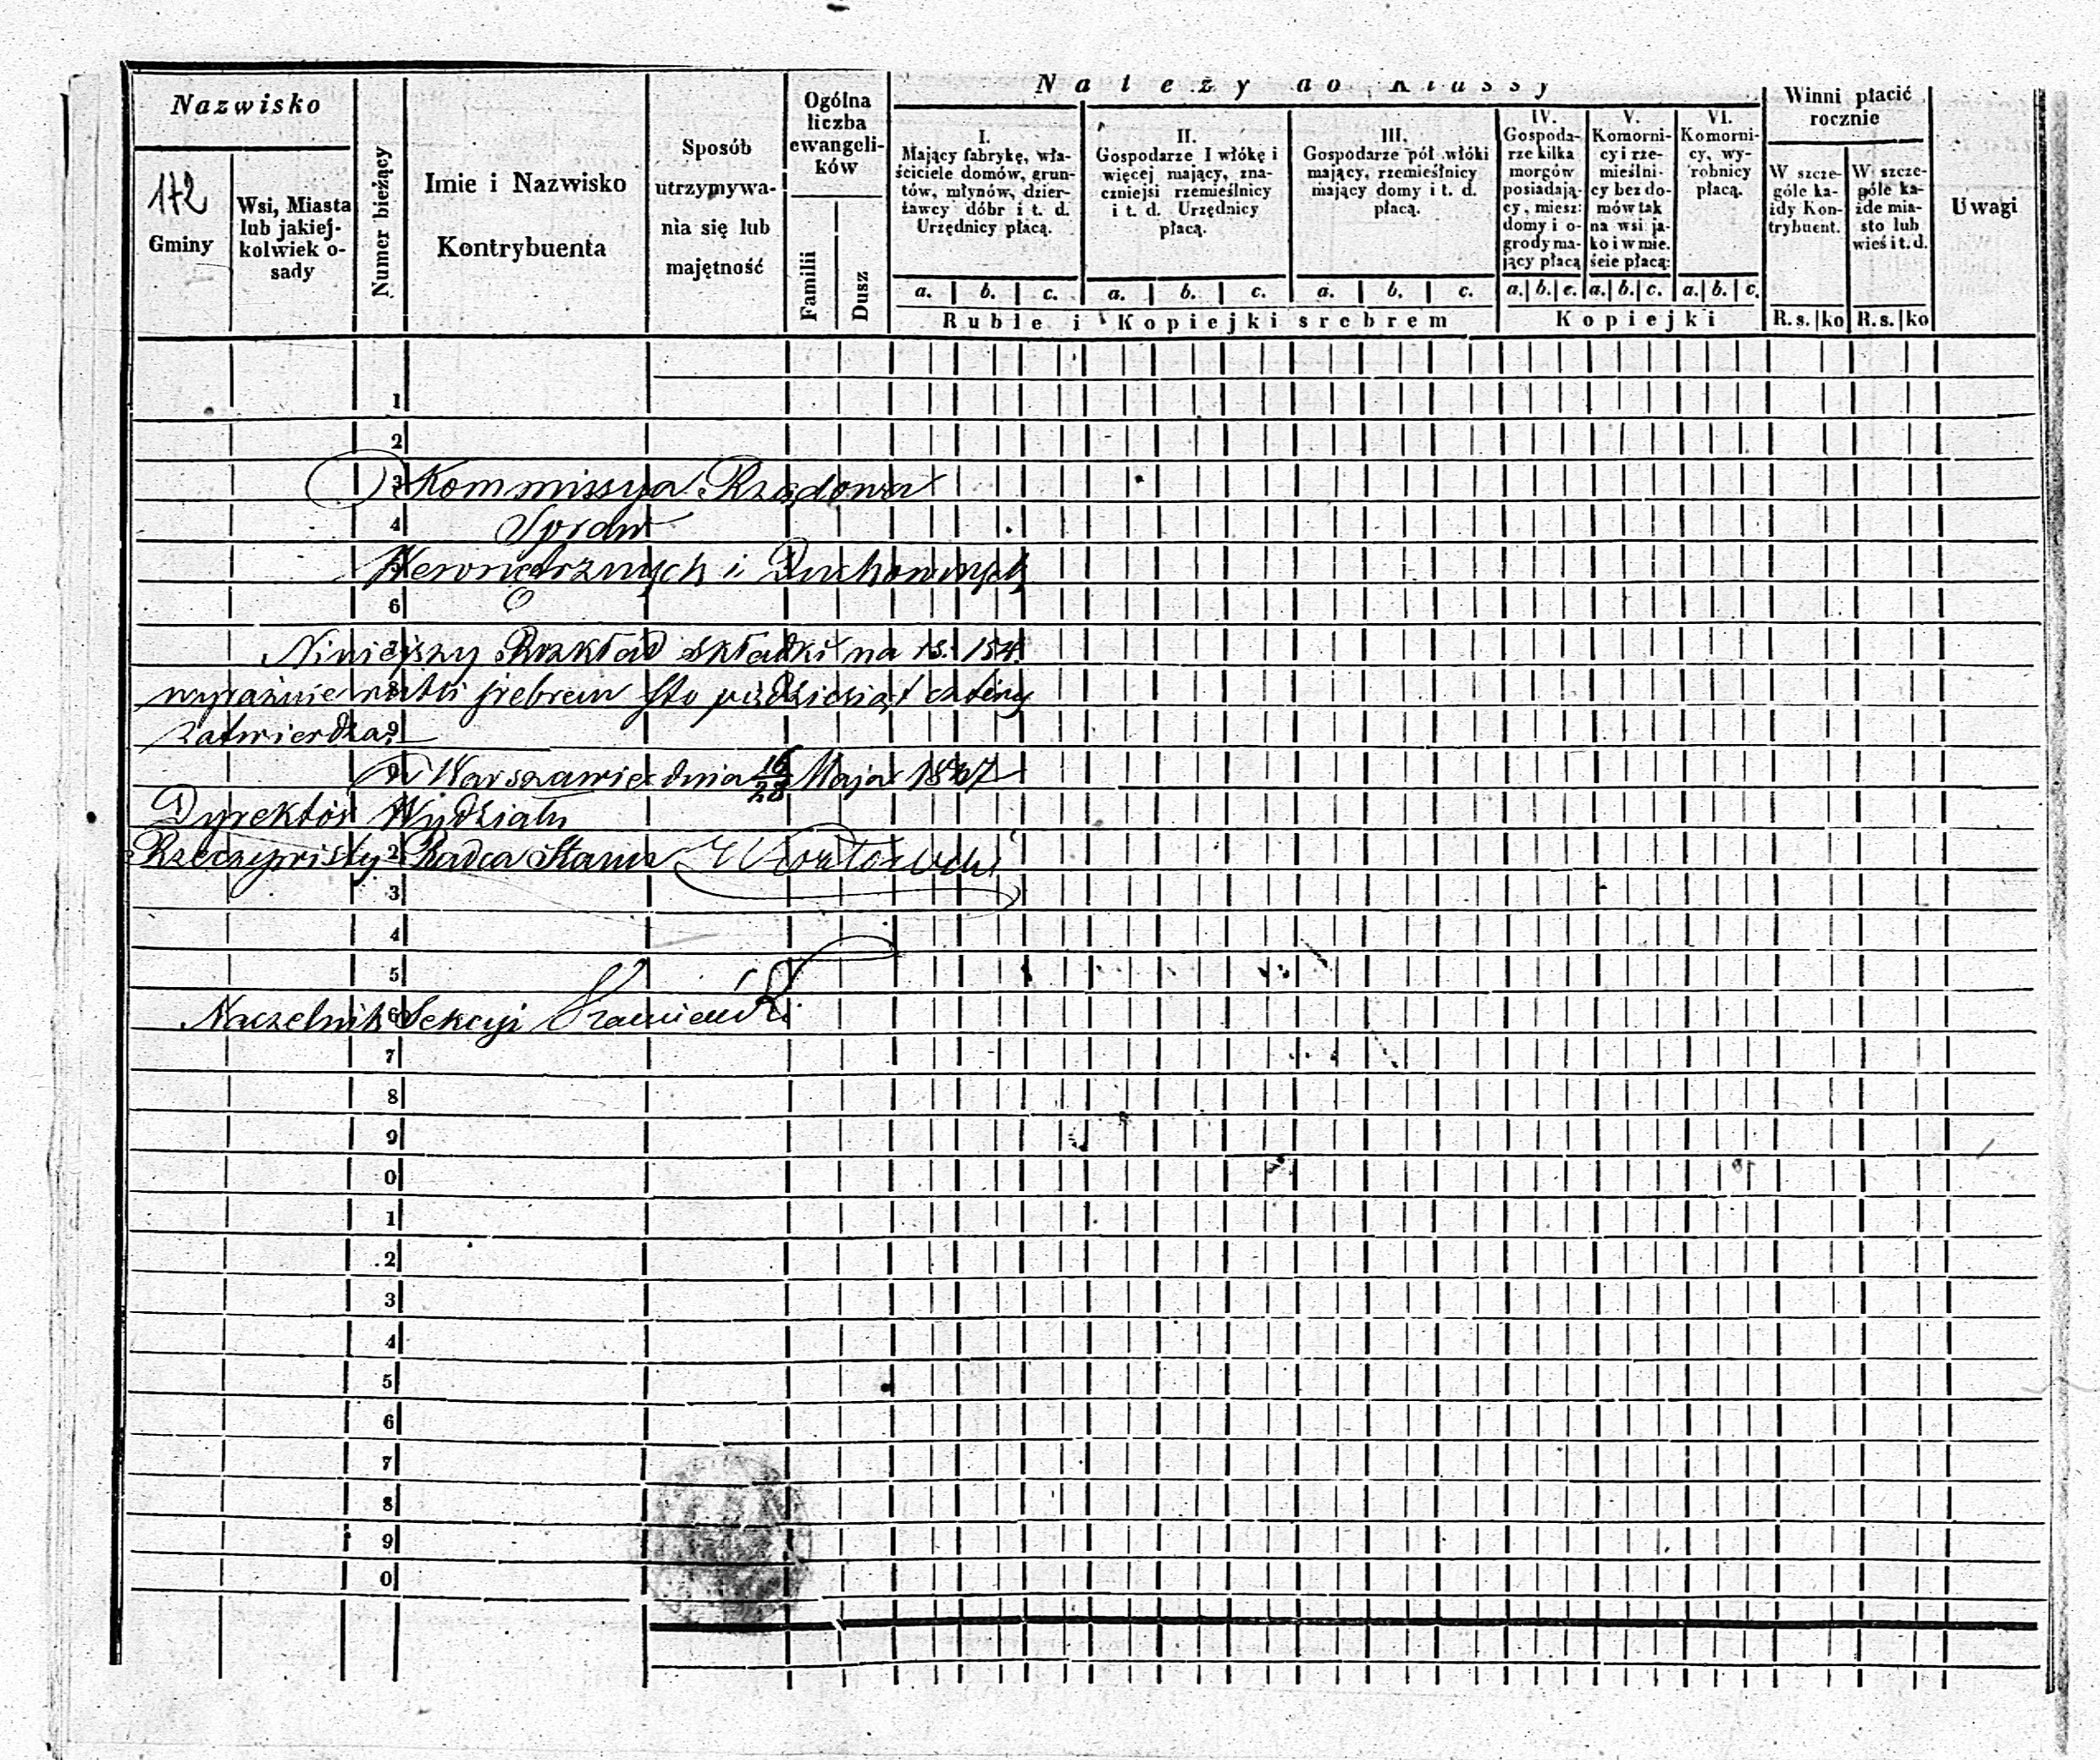 Nazwisko
172
Gminy
Wsi, Miasta
lub jakiej-
kolwiek o-
sady
Numer bieżący
Imie i Nazwisko
Kontrybuenta
Sposób
utrzymywa-
nia się lub
majętność
Ogólna
liczba
ewangeli-
ków
Familii
Dusz
Należy do Klassy
I.
Mający fabrykę, wła-
ściciele domów, grun-
tów, młynów, dzier-
żawcy dóbr i t. d.
Urzędnicy płacą.
II.
Gospodarze I włókę i
więcej mający, zna-
czniejsi rzemieślnicy
i t. d. Urzędnicy
płacą.
III.
Gospodarze pół włóki
mający, rzemieślnicy
mający domy i t. d.
płacą.
IV.
Gospoda-
rze kilka
morgów
posiadają-
cy, miesz:
domy i o-
grody ma-
jący płacą
V.
Komorni-
cy i rze-
mieślni-
cy bez do-
mów tak
na wsi ja-
ko i w mie.
ście płacą:
VI.
Komorni-
cy, wy-
robnicy
płacą.
a. b. c. a. b. c. a. b. c. a. b. c. a. b. c. a. b. c.
Ruble i Kopiejki srebrem
Kopiejki
Winni płacić
rocznie
W szcze-
góle ka-
żdy Kon-
trybuent.
W szcze-
góle ka-
żde mia-
sto lub
wieś i t. d.
R. s. ko R. s. ko
Uwagi
1
2
3 Kommissya Rządowa
4 Spraw
Wewnętrznych i Duchownych
6
Niniejszy Rozkład składki na rs. 154.
wyraźnie rubli srebrem sto pięćdziesiąt cztery
zatwierdza. 9
0 w Warszawie dnia 16/28 Maja 1847
Dyrektor Wydziału
Rzeczywisty 2 Radca Stanu
3
4
5
Naczelnik 6 Sekcyi
7
8
9
0
1
2
3
4
5
6
7
8
9
0